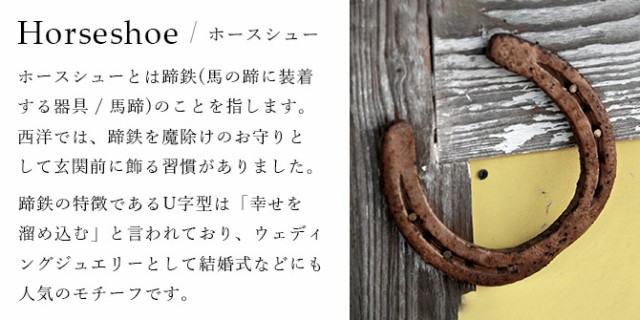 Horseshoe / ホースシュー
ホースシューとは蹄鉄(馬の蹄に装着
する器具 / 馬蹄)のことを指します。
西洋では、蹄鉄を魔除けのお守りと
して玄関前に飾る習慣がありました。
蹄鉄の特徴であるU字型は「幸せを
溜め込む」と言われており、ウェディ
ングジュエリーとして結婚式などにも
人気のモチーフです。